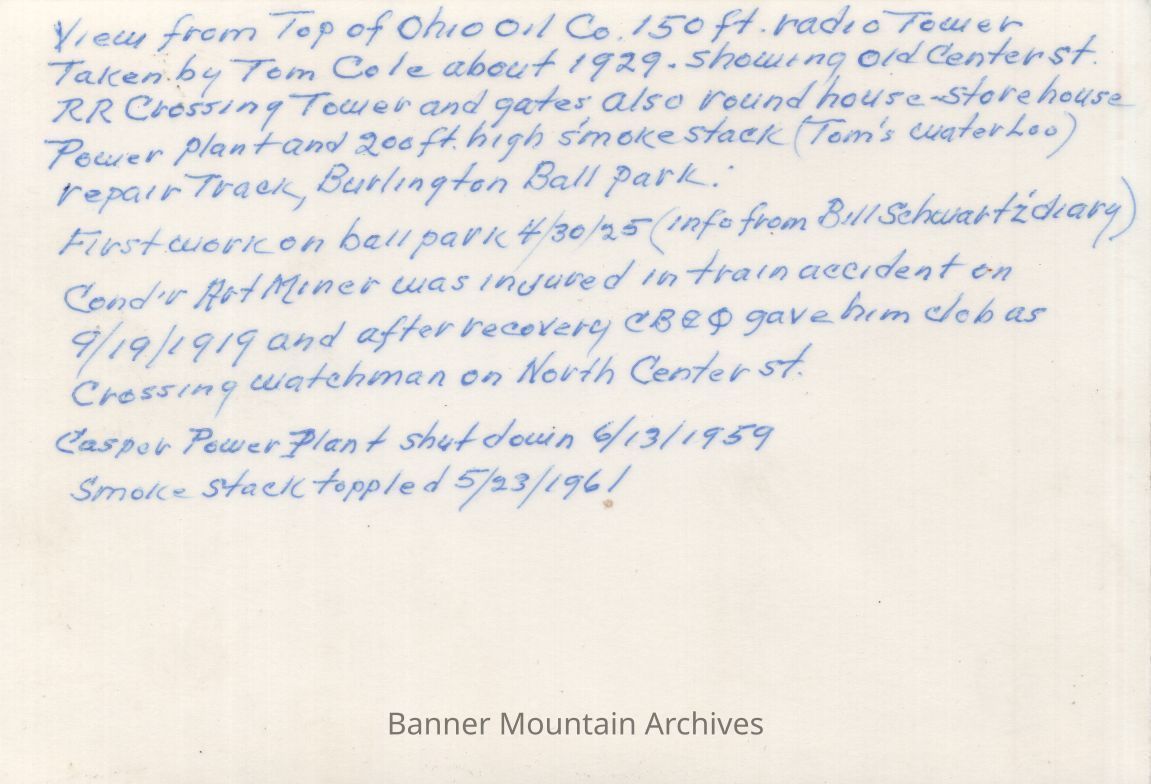 View from Top of Ohio Oil Co. 150 ft. radio Tower
Taken by Tom Cole about 1929. showing old Center st.
RR Crossing Tower and gates also round house - storehouse
Power plant and 200 ft. high smoke stack (Tom's waterloo)
repair Track, Burlington Ball park.
First work on ball park 4/30/25 (info from Bill Schwartz' diary)
Cond'r Art Miner was injured in train accident on
9/19/1919 and after recovery CB&Q gave him as
Crossing watchman on North Center st.
Casper Power Plant shut down 6/13/1959
Smoke stack toppled 5/23/1961
Banner Mountain Archives